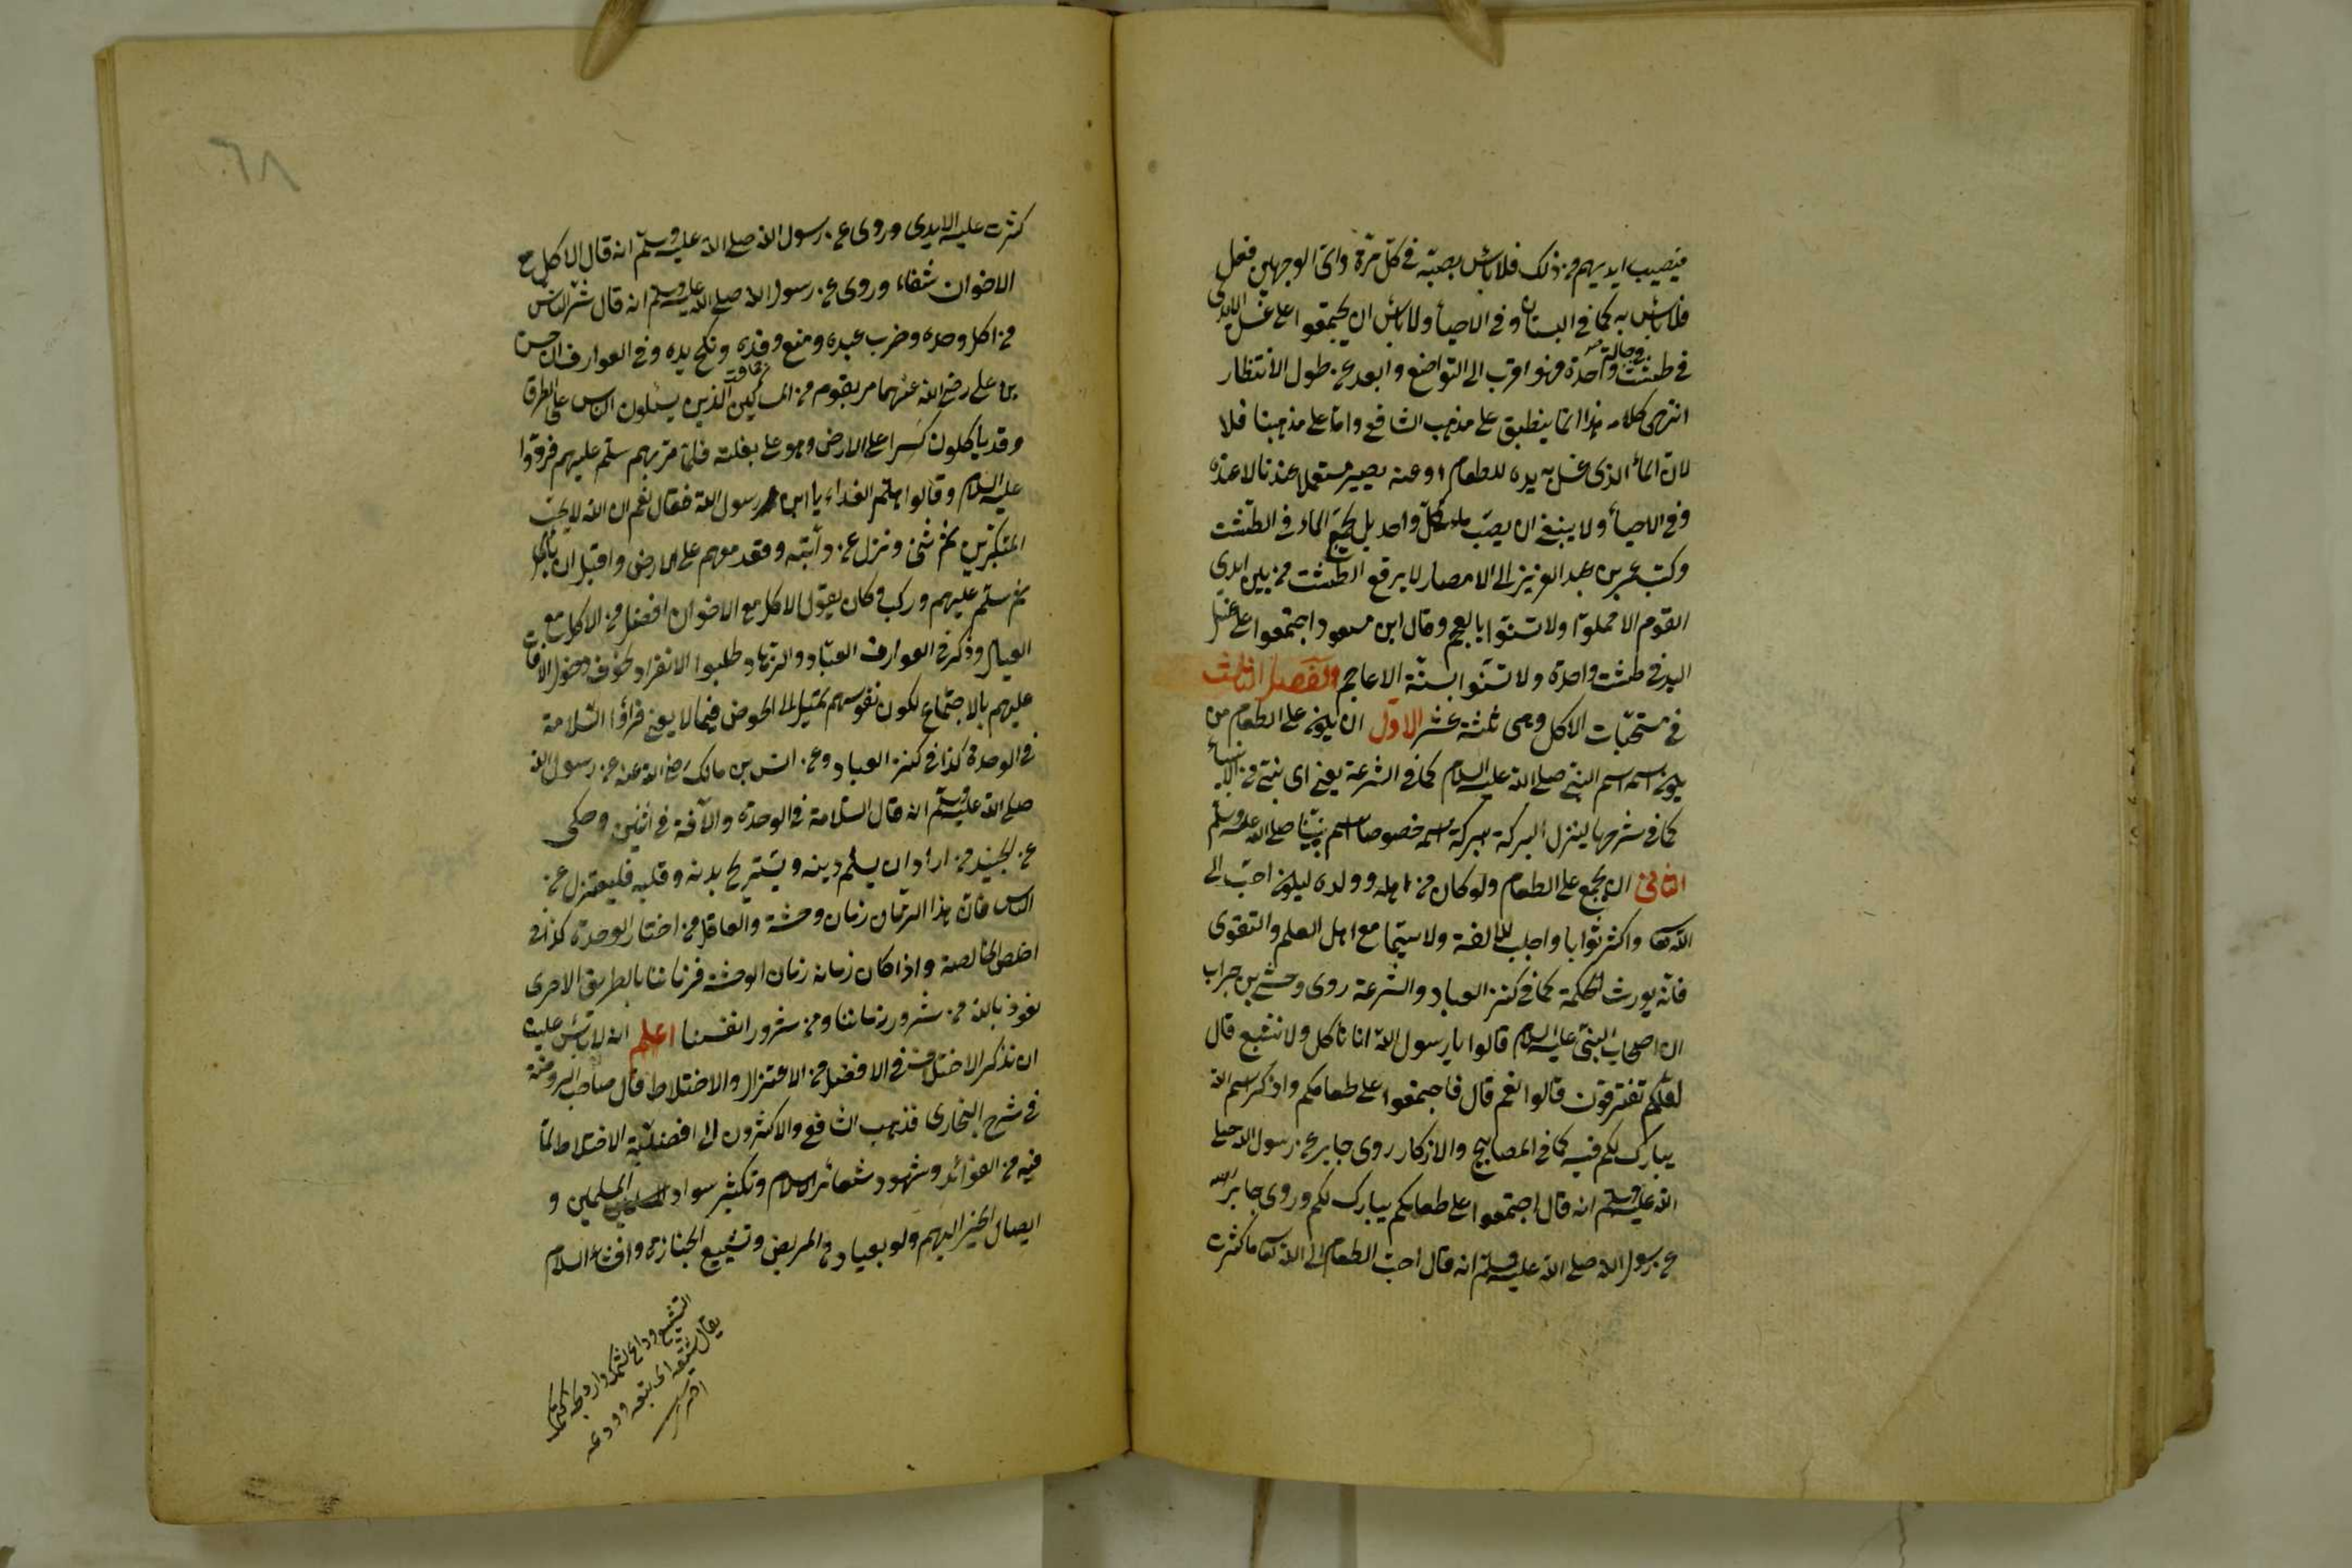 فيصيب ايديهم من ذلك فلا بأس بصبه في كل مرة واى الوجهين فعل
فلا بأس به كما في البستان وفي الاحياء ولا بأس ان يجتمعوا على غسل الايدى
في طشت واحدة في حالة فهو اقرب الى التواضع وابعد عن طول الانتظار
انتهى كلامه هذا انما ينطبق على مذهب الشافعي واما على مذهبنا فلا
لان الماء الذى غسل به يده للطعام او عنه يصير مستعملا عندنا لا عنده
وفي الاحياء ولا ينبغي ان يصب ماء كل واحد بل يجمع الماء في الطشت
وكتب عمر بن عبد العزيز الى الامصار لا يرفع الطشت من بين ايدى
القوم الا مملوا ولا تشبهوا بالعجم وقال ابن مسعود اجتمعوا على غسل
اليد في طشت واحدة ولا تستنوا بسنة الاعاجم والفصل الثالث
في مستحبات الاكل وهى ثلثة عشر الاول ان يكون على الطعام من
يكون اسمه اسم النبي صلى الله عليه السلام كما في الشرعة يعنى اى نبي من الانبياء
كما في شرحها لينزل البركة ببركة اسمه خصوصا اسم نبينا صلى الله عليه وسلم
الثاني ان يجمع على الطعام ولو كان من اهله وولده ليكون احب الى
الله تعا واكثر ثوابا واجلب للالفة ولا سيما مع اهل العلم والتقوى
فانه يورث الحكمة كما في كنز العباد والشرعة روى وحشي بن حراب
ان اصحاب النبي عليه السلام قالوا يا رسول الله انا ناكل ولا نشبع قال
لعلكم تفترقون قالوا نعم قال فاجتمعوا على طعامكم واذكر اسم الله
يبارك لكم فيه كما في المصابيح والاذكار روى جابر عن رسول الله صلى
الله عليه وسلم انه قال اجتمعوا على طعامكم يبارك لكم وروى جابر
عن رسول الله صلى الله عليه وسلم انه قال احب الطعام الى الله تعا ما كثرت
٦٨
كثرت عليه الايدى وروى عن رسول الله صلى الله عليه وسلم انه قال الاكل مع
الاخوان شفاء وروى عن رسول الله صلى الله عليه وسلم انه قال شر الناس
من اكل وحده وضرب عبده ومنع رفده ونكح يده وفي العوارف ان حسن
بن على رضى الله عنهما مر بقوم من المساكين الذين يسئلون الناس على الطرق
وقد ياكلون كسرا على الارض وهو على بغلته فلما مر بهم سلم عليهم فردوا
عليه السلام وقالوا هلم الغداء يا ابن رسول الله فقال نعم ان الله لا يحب
المتكبرين ثم ثنى ونزل عن دآبته وقعد معهم على الارض واقبل ان يأكل
ثم سلم عليهم وركب وكان يقول الاكل مع الاخوان افضل من الاكل مع
العيال وذكر في العوارف العباد والزهاد طلبوا الانفراد لخوف دخول الافات
عليهم بالاجتماع لكون نفوسهم تميل الى الخوض فيما لا يعنى فرأوا السلامة
في الوحدة كذا في كنز العباد وعن انس بن مالك رضى الله عنه عن رسول الله
صلى الله عليه وسلم انه قال السلامة في الوحدة والآفة في اثنين وحكى
عن الجنيد من اراد ان يسلم دينه ويستريح بدنه وقلبه فليعتزل عن
الناس فان هذا الزمان زمان وحشة والعاقل من اختار الوحدة كذا في
اخلص الخالصة واذا كان زمانه زمان الوحشة فزماننا بالطريق الاحرى
نعوذ بالله من شرور زماننا ومن شرور انفسنا اعلم انه لا بأس علينا
ان نذكر الاختلاف في الافضل من الاعتزال والاختلاط قال صاحب الروضة
في شرح البخارى فذهب الشافعي والاكثرون الى افضلية الاختلاط لما
فيه من الفوائد وشهود شعائر الاسلام وتكثير سواد المسلمين و
ايصال الخير اليهم ولو بعيادة المريض وتشييع الجنازة وافشاء السلام
التشييع
يقال شيعه اى تبعه وودعه